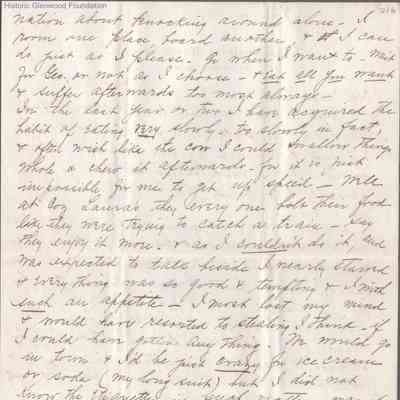 Historic Glenwood Foundation
nation about knocking around alone - I
room one place board another & I can
do just as I please. Go when I want to - Wait
for Geo. or not as I choose - & eat all you want
& suffer afterwards too most always -
In the last year or two I have acquired the
habit of eating very slowly - too slowly in fact,
& often wish like the cow I could swallow things
whole & chew it afterwards - for it is most
impossible for me to get up speed - Well
at Coz Lauras they every one bolt their food
like they were trying to catch a train - say
they enjoy it more - & as I couldn't do it, and
was expected to talk beside I nearly starved
& every thing was so good & tempting & I with
such an appetite - I most lost my mind
& would have resorted to stealing I think - if
I could have gotten any thing - We would go
in town & I'd be just crazy for ice cream
or soda (my long suit) but I did not
know the